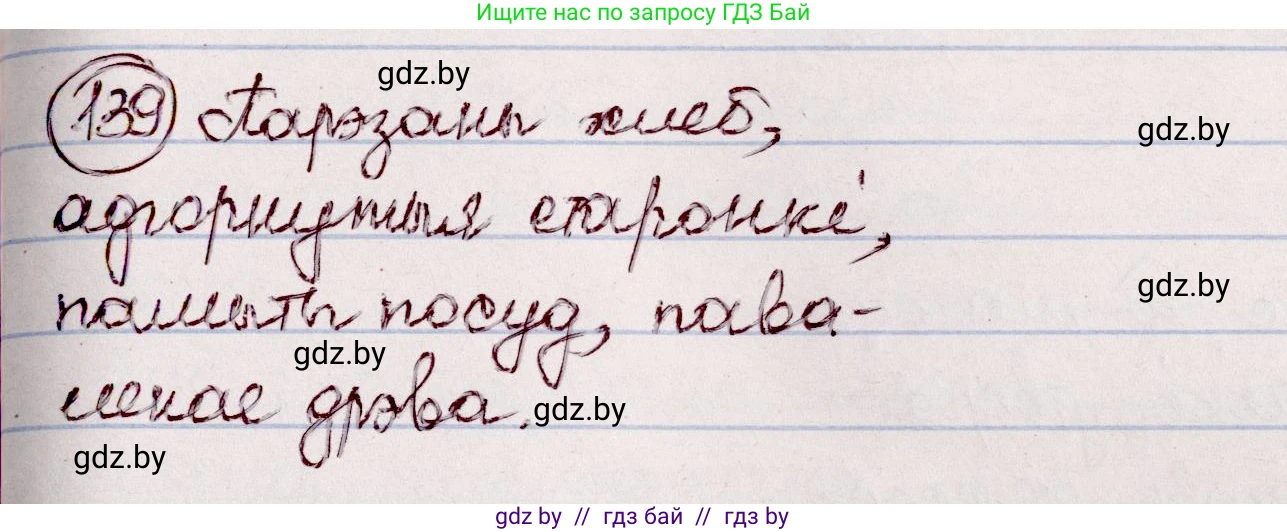 Ищите нас по запросу ГДЗ Бай
gdz.by
139 Парэзаны хлеб,
gdz.by
адгорнутыя старонкі,
gdz.by
памыты посуд, пава-
gdz.by
ленае дрэва.
gdz.by
gdz.by
gdz by // гдз бай // гдз by